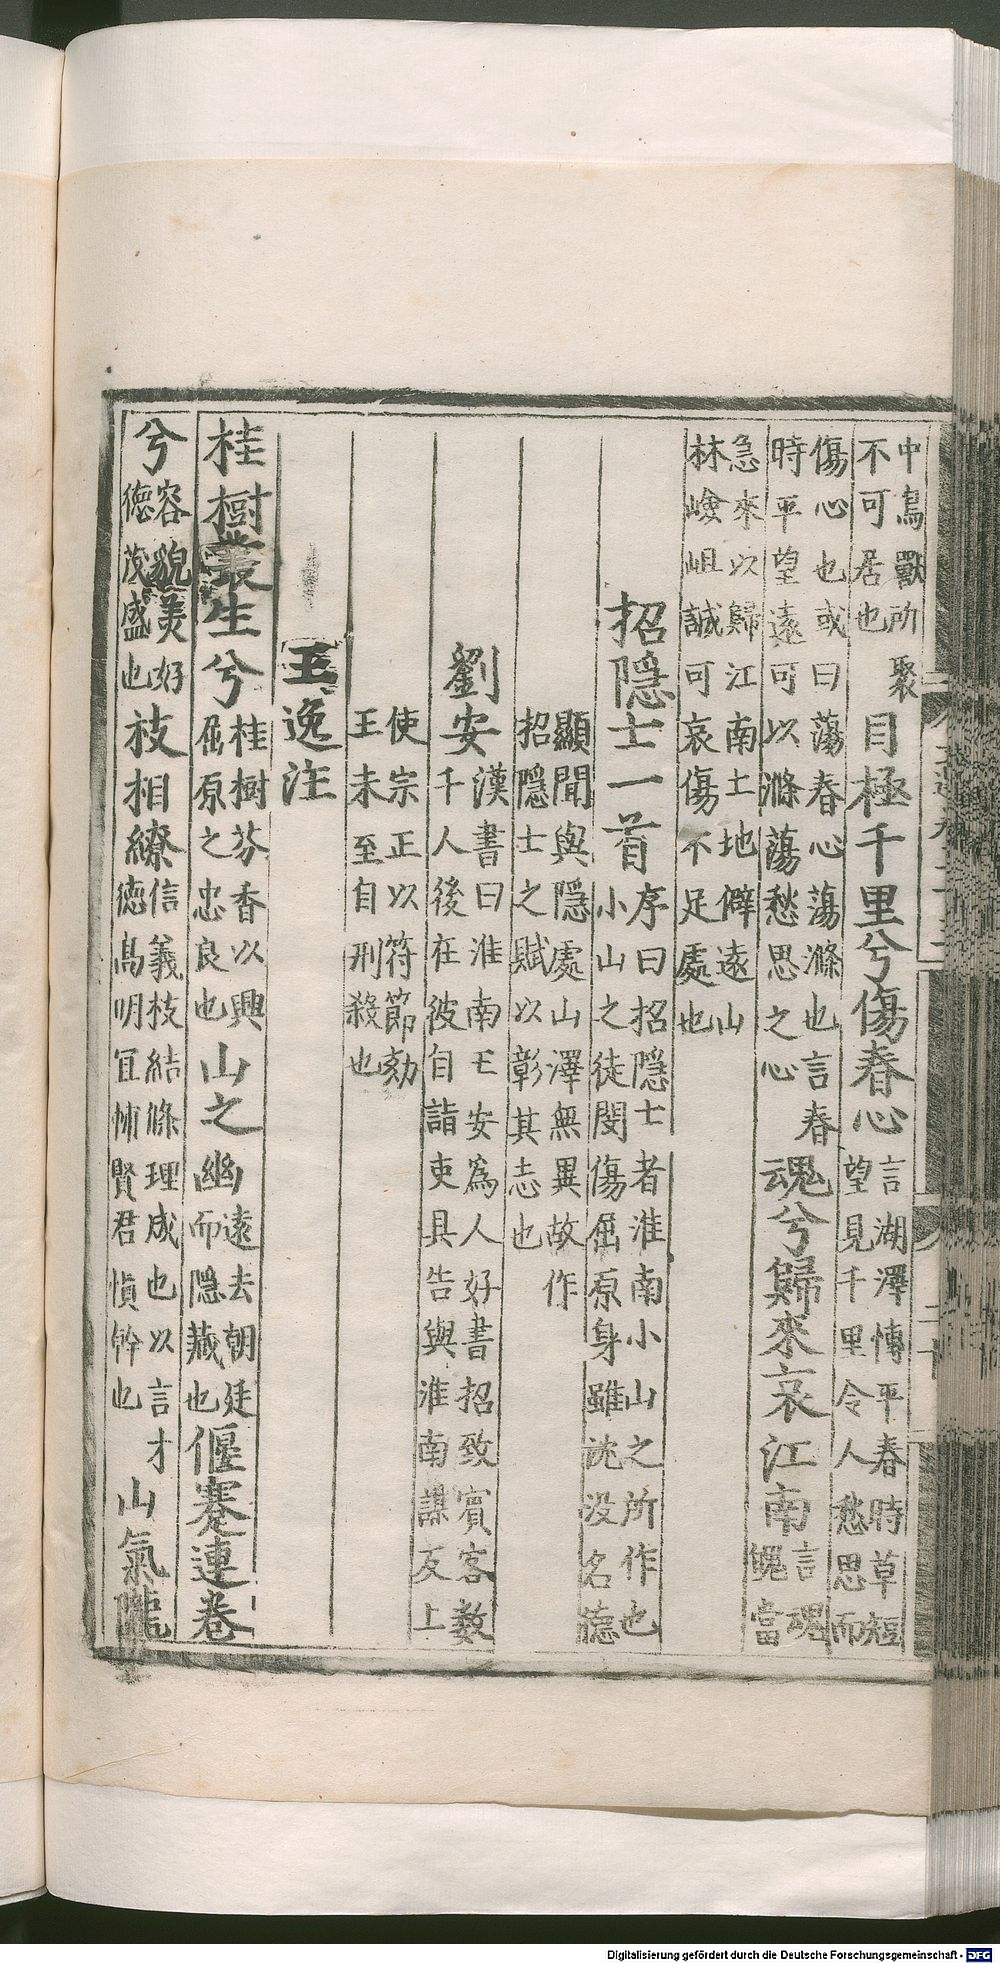 中鳥獸所聚
不可居也
目極千里兮傷春心
言湖澤愽平春時草短
望見千里令人愁思而
傷心也或曰蕩春心蕩滌也言春
時平望遠可以滌蕩愁思之心
魂兮歸來哀江南
言魂
魄當
急來以歸江南土地僻遠山
林嶮岨誠可哀傷不足處也
招隱士一首
序曰招隱士者淮南小山之所作也
小山之徒閔傷屈原身雖沈没名德
顯聞與隱處山澤無異故作
招隱士之賦以彰其志也
劉安
漢書曰淮南王安爲人好書招致賓客數
千人後在彼自詣吏具告與淮南謀反上
使宗正以符節劾
王未至自刑殺也
王逸注
桂樹叢生兮
桂樹芬香以興
屈原之忠良也
山之幽
遠去朝廷
而隱藏也
偃蹇連卷
兮
容貌美好
德茂盛也
枝相繚
信義枝結條理成也以言才
德高明宜輔賢君愼幹也
山氣隴
Digitalisierung gefördert durch die Deutsche Forschungsgemeinschaft - DFG